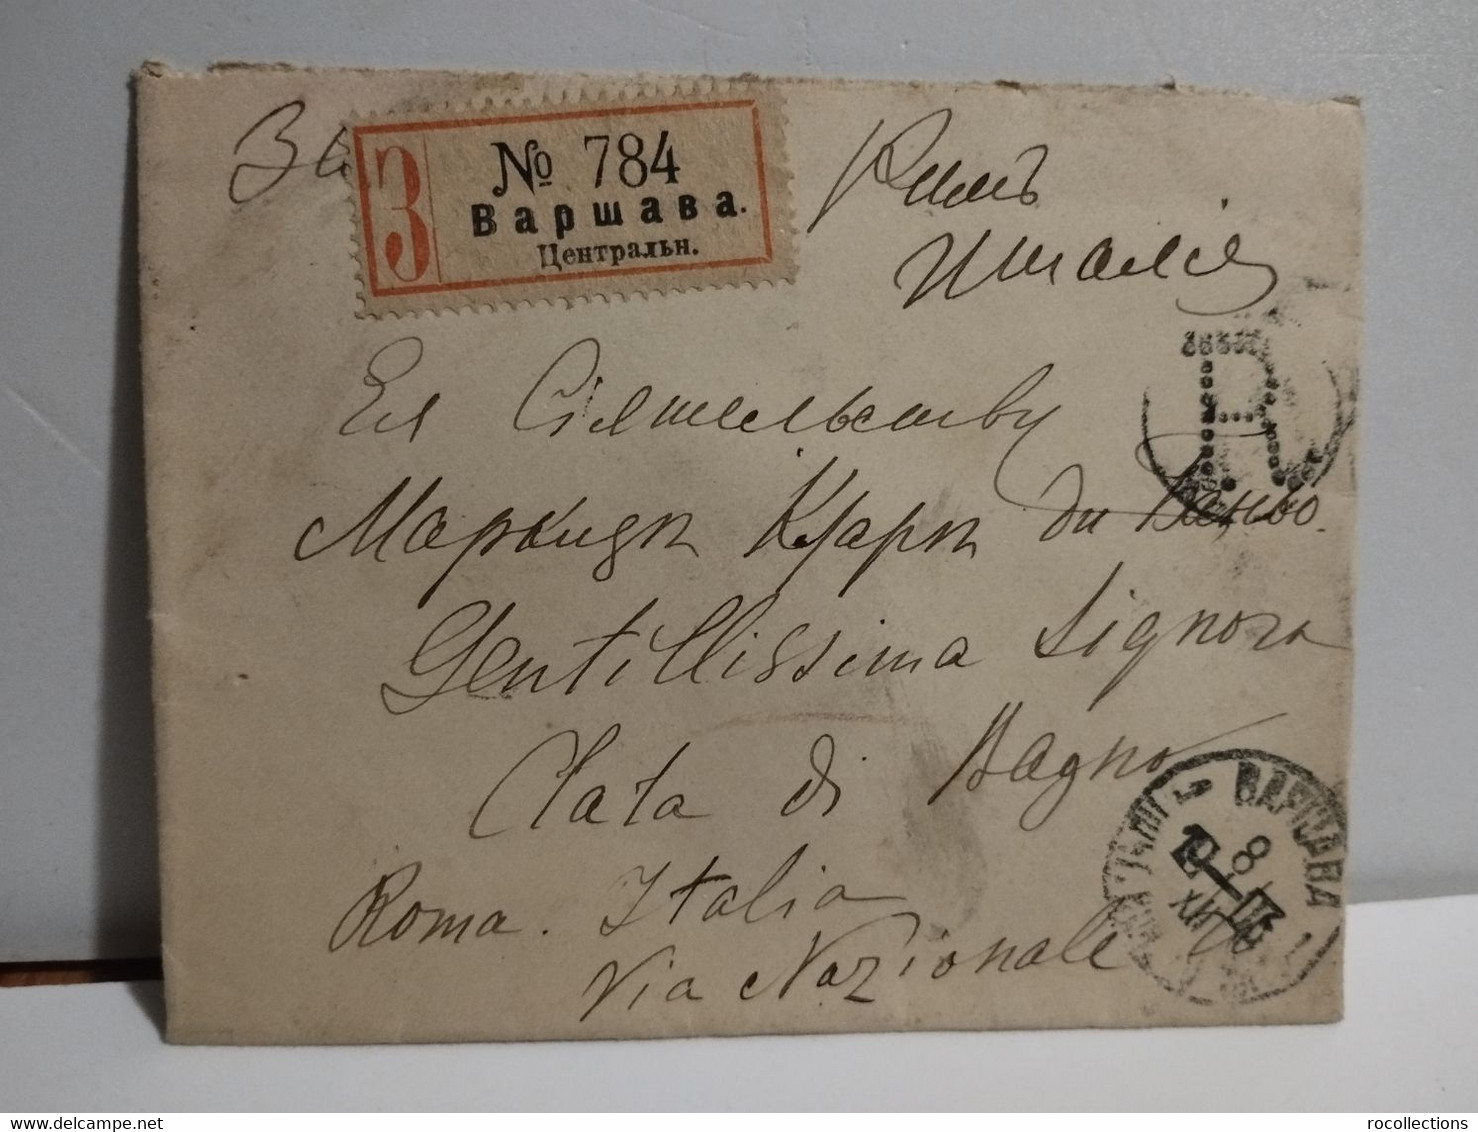 За
З
№ 784
Варшава.
Центральн.
Римъ
Италія
R
Ея Сіятельству
Маркизѣ Кларѣ ди Баньо.
Gentillissima Signora
Clara di Bagno
Roma. Italia
Via Nazionale
ВАРШАВА
8
XII
rocollections